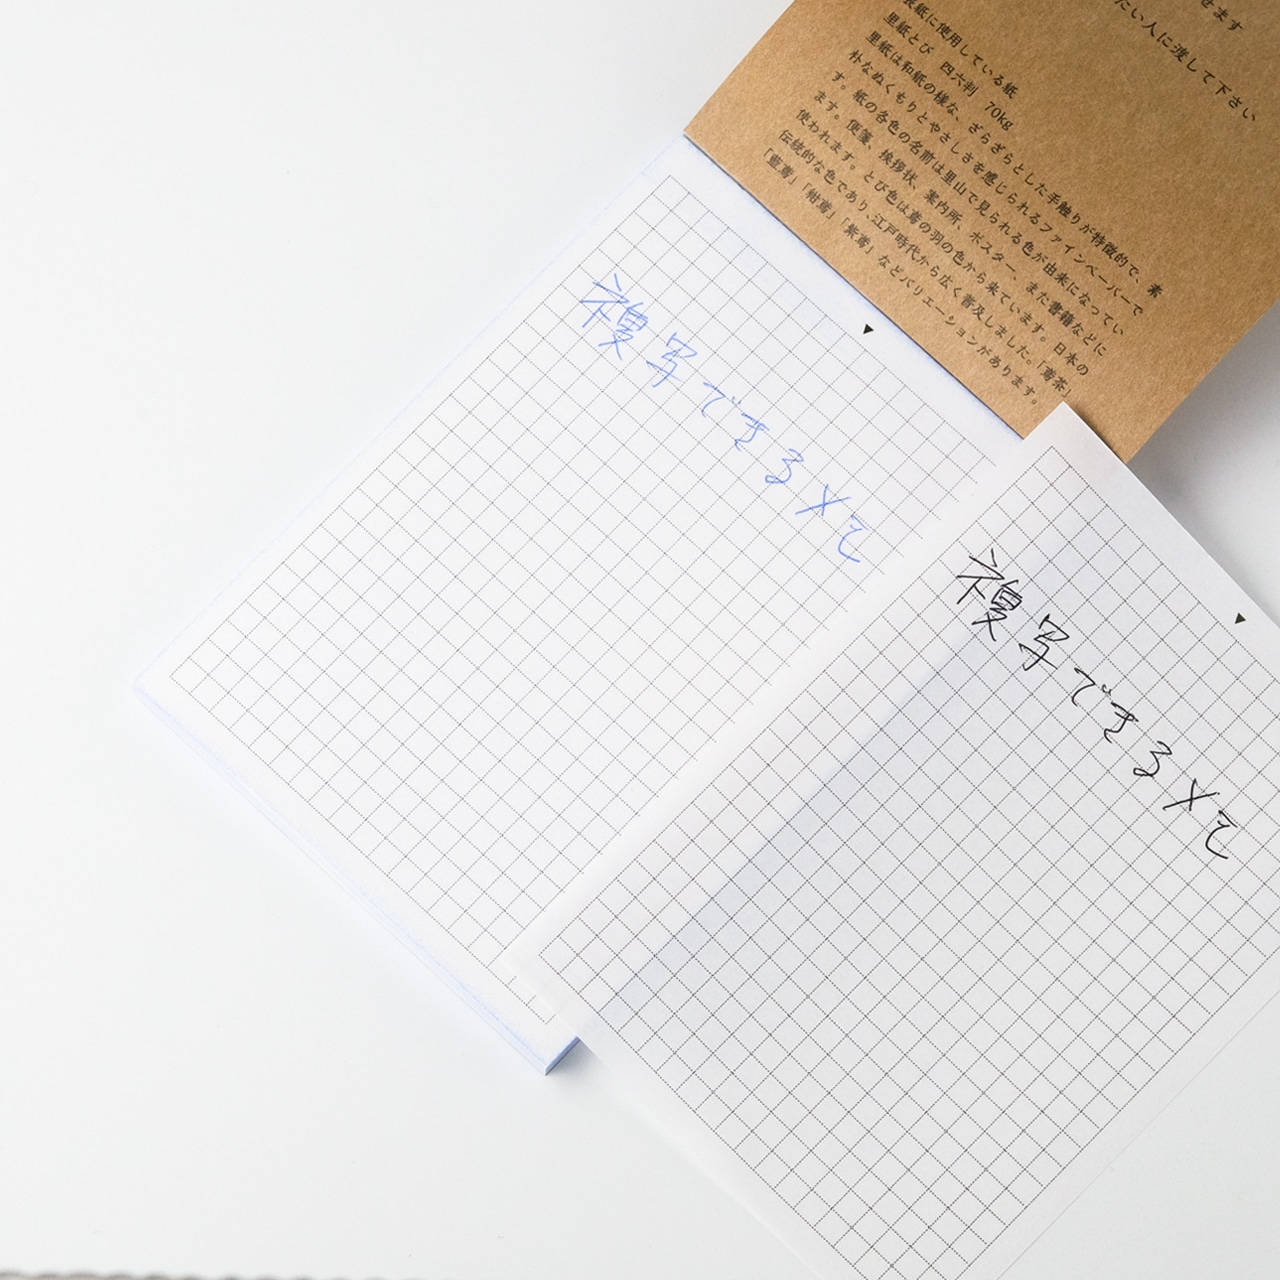 せます
たい人に渡して下さい
表紙に使用している紙
里紙とび 四六判 70kg
里紙は和紙の様な、ざらざらとした手触りが特徴的で、素
朴なぬくもりとやさしさを感じられるファインペーパーで
す。紙の各色の名前は里山で見られる色が由来になってい
ます。便箋、挨拶状、案内所、ポスター、また書籍などに
使われます。とび色は鳶の羽の色から来ています。日本の
伝統的な色であり、江戸時代から広く普及しました。「鳶茶」
「藍鳶」「紺鳶」「紫鳶」などバリエーションがあります。
複写できるメモ
複写できるメモ